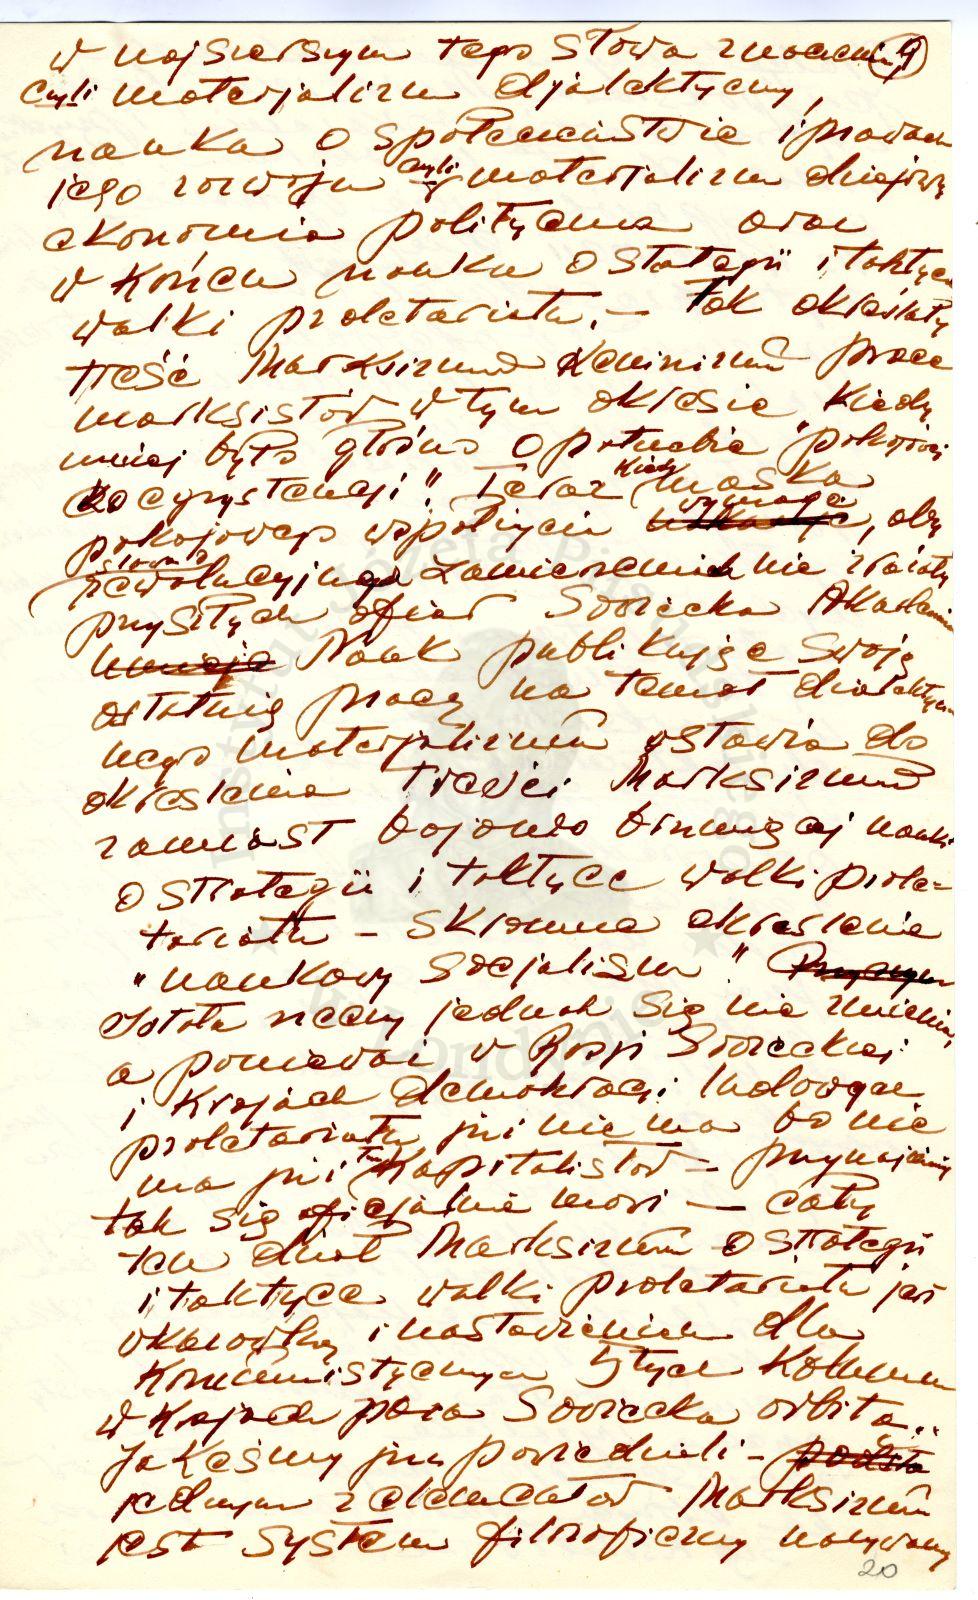 w najszerszym tego słowa znaczeniu 9
czyli materjalizm djalektyczny,
nauka o społeczeństwie i prawach
jego rozwoju czyli materjalizm dziejowy
ekonomia polityczna oraz
w końcu nauka o strategii i taktyce
walki proletariatu. — Tak określały
treść Marksizmu Leninizmu prace
marksistów w tym okresie kiedy
mniej było głośno o potrzebie "pokojowej
koegzystencji". Teraz kiedy maska
pokojowego współżycia wymaga, aby
słowa
rewolucyjnego zamierzenia nie zrażały
przyszłych ofiar Sowiecka Akademia
Nauk publikując swoją
ostatnią pracę na temat dialektycz-
nego materjalizmu wstawia do
określenia treści Marksizmu
zamiast bojowo brzmiącej nauki
o strategii i taktyce walki prole-
tariatu — skromne określenie
"naukowy socjalism" Przyczym
Istota rzeczy jednak się nie zmienia,
a ponieważ w Rosji Sowieckiej
i krajach demokracji ludowych
proletariatu już nie ma bo nie
ma już tam kapitalistów — przynajmniej
tak się oficjalnie mówi — cały
ten dział Marksizmu o strategii
i taktyce walki proletariatu jest
wskazówką i nastawieniem dla
Komunistycznych 5tych kolumn
w krajach poza Sowiecką orbitą..
Jakeśmy już powiedzieli —
jednym z elementów Marksizmu
jest system filozoficzny nazywany
20
Instytut Józefa Piłsudskiego
w Londynie